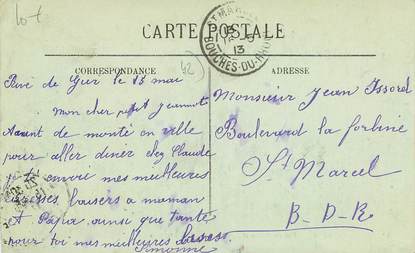 10 €
CARTE POSTALE
ST MARCEL
13
BOUCHES-DU-RHÔNE
CORRESPONDANCE
42
ADRESSE
Rive de Gier le 13 mai
Mon cher petit jeannot
Avant de monté en ville
pour aller diner chez Claude
je t'envoie mes meilleures
baisers à maman
et Papa ainsi que tante
pour toi mes meilleures
Simonne
Monsieur Jean Issord
Boulevard la forbine
St Marcel
B-D-R